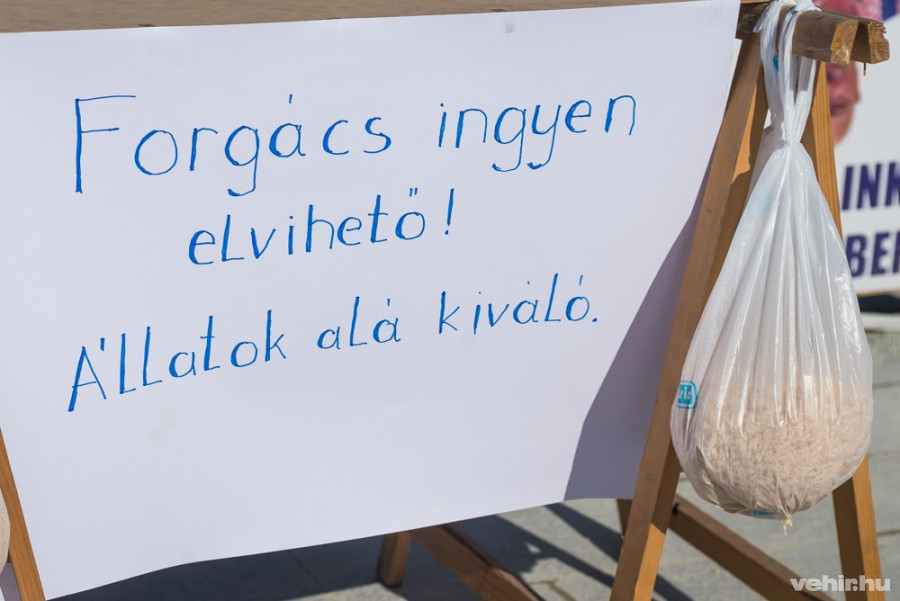 Forgács ingyen
elvihető!
Állatok alá kiváló.
INK
BER
vehir.hu